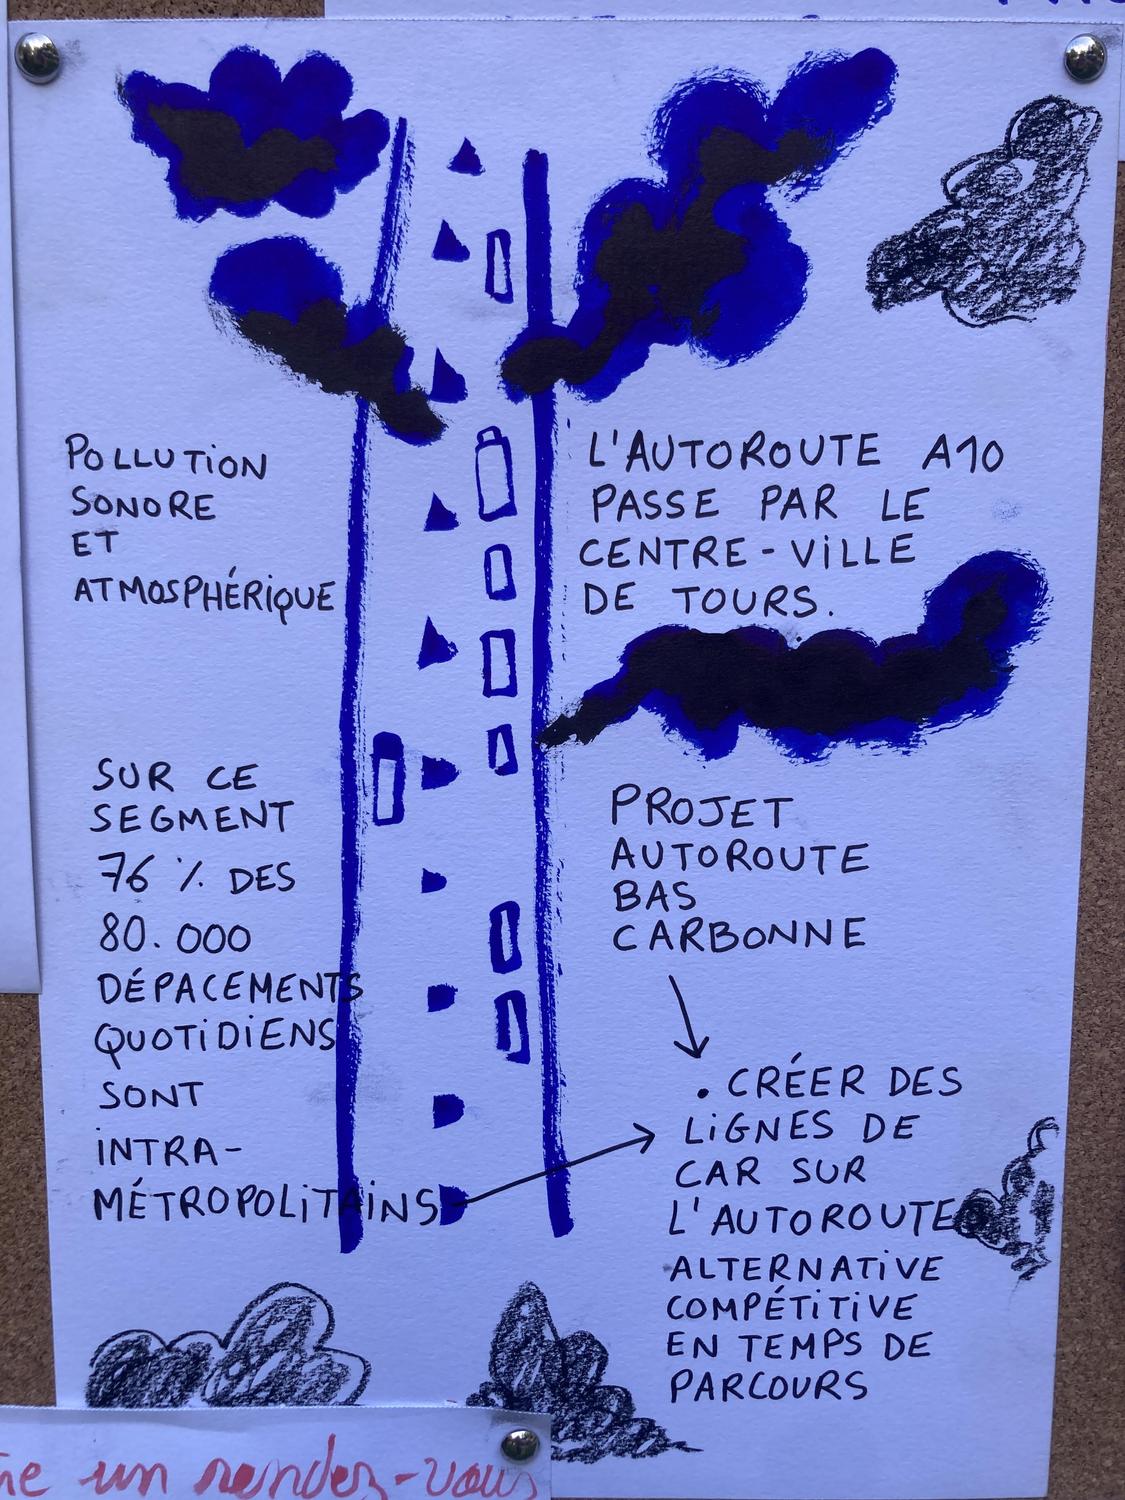 POLLUTION
SONORE
ET
ATMOSPHÉRIQUE
L'AUTOROUTE A10
PASSE PAR LE
CENTRE-VILLE
DE TOURS.
SUR CE
SEGMENT
76 % DES
80.000
DÉPACEMENTS
QUOTIDIENS
SONT
INTRA-
MÉTROPOLITAINS
PROJET
AUTOROUTE
BAS
CARBONNE
. CRÉER DES
LIGNES DE
CAR SUR
L'AUTOROUTE
ALTERNATIVE
COMPÉTITIVE
EN TEMPS DE
PARCOURS
un rendez-vous